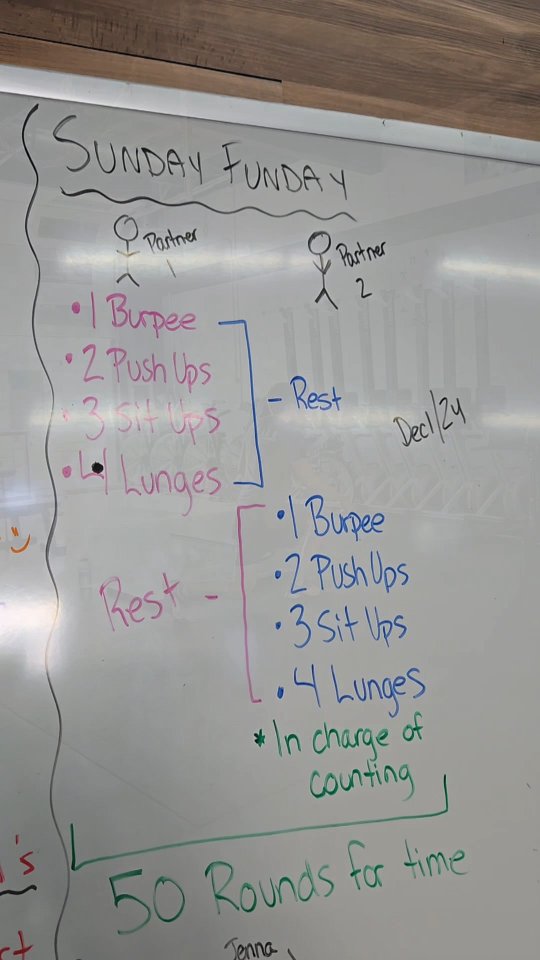 SUNDAY FUNDAY
Partner
1
Partner
2
• 1 Burpee
• 2 Push Ups
• 3 Sit Ups
• 4 Lunges
- Rest
Dec1/24
Rest -
• 1 Burpee
• 2 Push Ups
• 3 Sit Ups
• 4 Lunges
* In charge of
counting
50 Rounds for time
Jenna
's